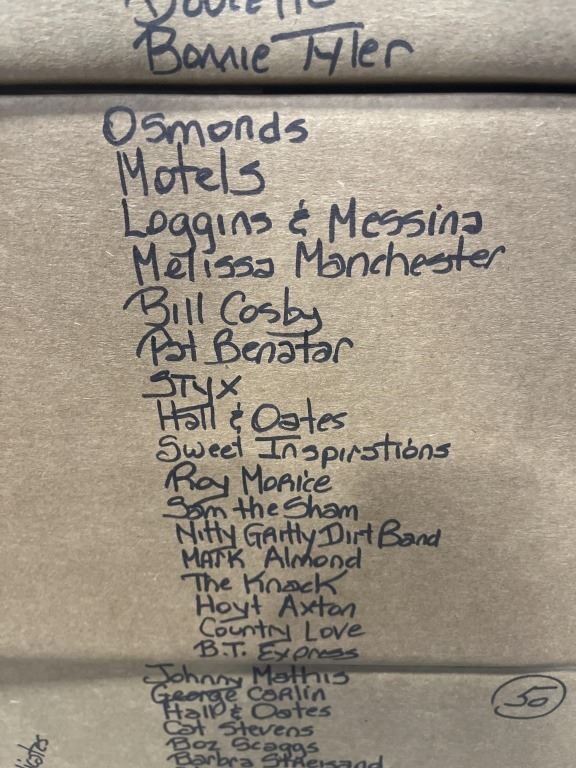 Bonnie Tyler
Osmonds
Motels
Loggins & Messina
Melissa Manchester
Bill Cosby
Pat Benatar
STyx
Hall & Oates
Sweet Inspirations
Ray Morice
Sam the Sham
Nitty Gritty Dirt Band
MARK Almond
The Knack
Hoyt Axton
Country Love
B.T. Express
Johnny Mathis
George Carlin
Hall & Oates
Cat Stevens
Boz Scaggs
Barbra Streisand
50